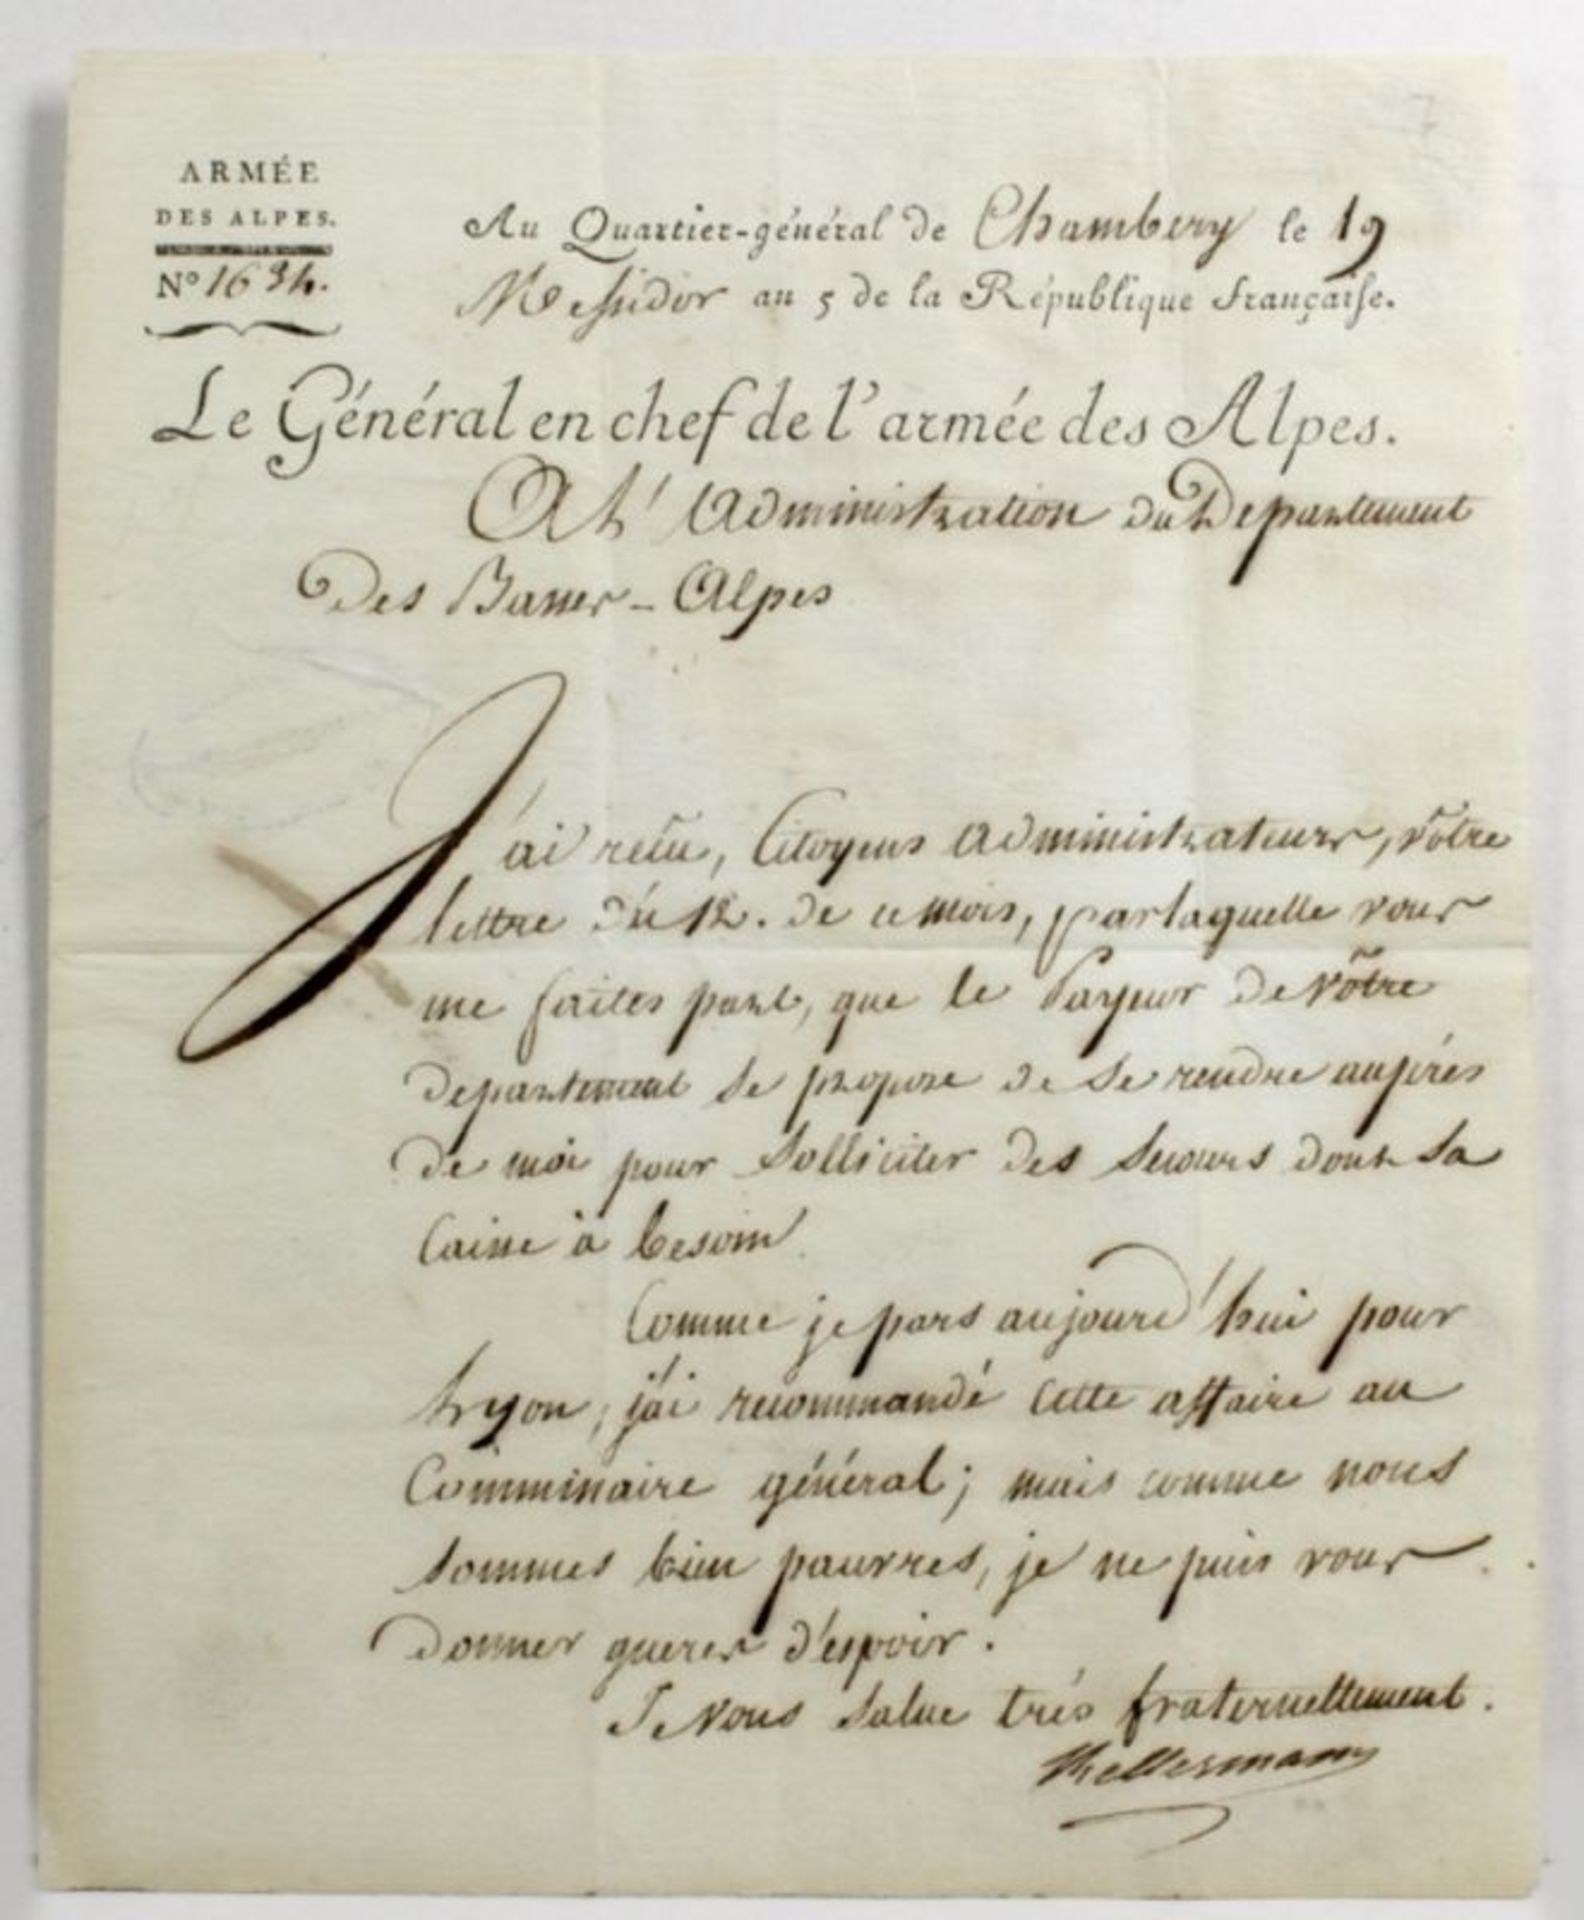 ARMÉE
DES ALPES.
N° 1634.
Au Quartier-général de Chambery le 19
Messidor an 5 de la République française.
Le Général en chef de l'armée des Alpes.
A l'Administration du Departement
Des Basses-Alpes
J'ai reçu, Citoyens administrateurs, vôtre
lettre du 12. de ce mois, par laquelle vous
me faites part, que le Payeur de vôtre
departement se propose de se rendre auprès
de moi pour solliciter des secours dont sa
Caisse à besoin
Comme je pars aujourd'hui pour
Lyon, j'ai recommandé cette affaire au
Commissaire général; mais comme nous
sommes bien pauvres, je ne puis vous
donner gueres d'espoir.
Je vous salue très fraternellement.
Kellermann